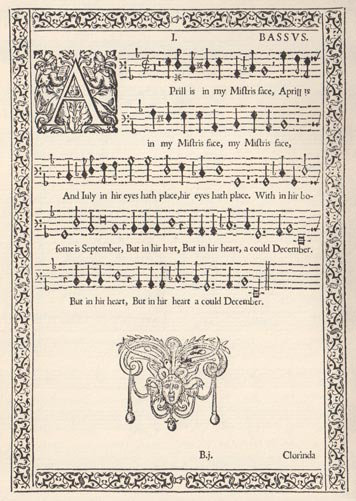 I. BASSVS.
APrill is in my Miſtris face, Aprill is
in my Miſtris face, my Miſtris face,
And Iuly in hir eyes hath place,hir eyes hath place. With in hir bo-
ſome is September, But in hir hart, But in hir heart, a could December.
But in hir heart, But in hir heart a could December.
B.j. Clorinda